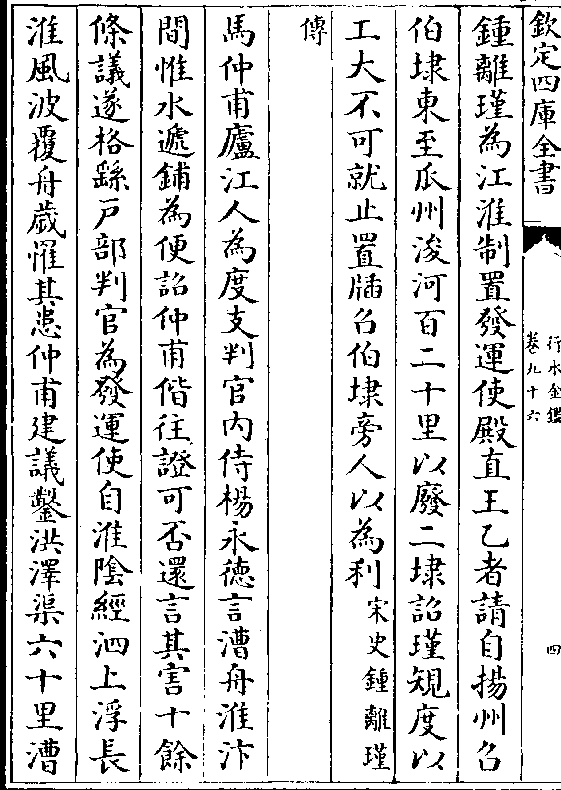 欽定四庫全書
行水金鑑
卷九十六
四
鍾離瑾為江淮制置發運使殿直王乙者請自揚州召
伯埭東至瓜州浚河百二十里以廢二埭詔瑾規度以
工大不可就止置牐召伯埭旁人以為利宋史鍾離瑾
傳
馬仲甫廬江人為度支判官內侍楊永德言漕舟淮汴
間惟水遞鋪為便詔仲甫偕往證可否還言其害十餘
條議遂格繇戸部判官為發運使自淮陰經泗上浮長
淮風波覆舟歲罹其患仲甫建議鑿洪澤渠六十里漕